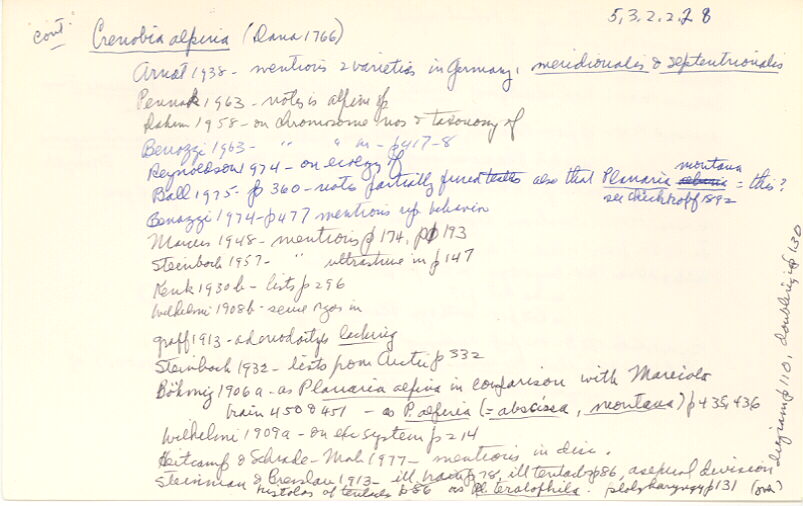 5,3,2,2,2 8
"cont." Crenobia alpina (Dana 1766)
Arndt 1938 - mentions 2 varieties in Germany, meridionalis & septentrionalis
Pennak 1963 - notes is alpine sp
Dahm 1958 - on chromosome nos & taxonomy of
Benazzi 1963 - " " " in - p417-8
Reynoldson 1974 - on ecology of
Ball 1975 - p 360 - notes partially fused testes also that Planaria montana = this?
see Chichkoff 1892
Benazzi 1974 - p477 mentions rep behavior
Marcus 1948 - mentions p 174, p 193
Steinbock 1957 - " in p 147
Kenk 1930b - lists p 296
Wilhelmi 1908b - sense orgs in
Graff 1913 - lacking
Steinbock 1932 - lists from Arctic p 332
Böhmig 1906a - as Planaria alpina in comparison with Maricola
brain 450 & 451 - as P. alpina (= abscissa, montana) p 435, 436
Wilhelmi 1909a - on exc system p 214
Heitcamp & Schrade-Mock 1977 - mentions in disc.
Steinman & Breslau 1913 - ill p78, ill tentacles p86, asexual division
histolog of tentacles p 86 as Pl. teratophila. polypharyngy p 131 (over)
diagram p 110, doubling p 130